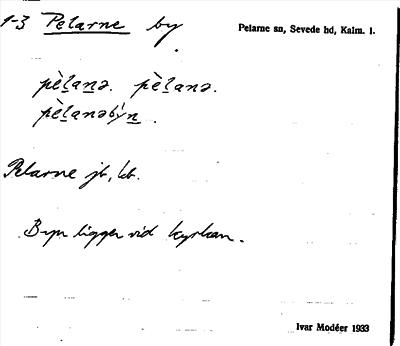 1-3 Pelarne by
Pelarne sn, Sevede hd, Kalm. l.
pèḻanə. pèḻanə.
pèḻanəbýṉ.
Pelarne jb, kb.
Byn ligger vid kyrkan.
Ivar Modéer 1933